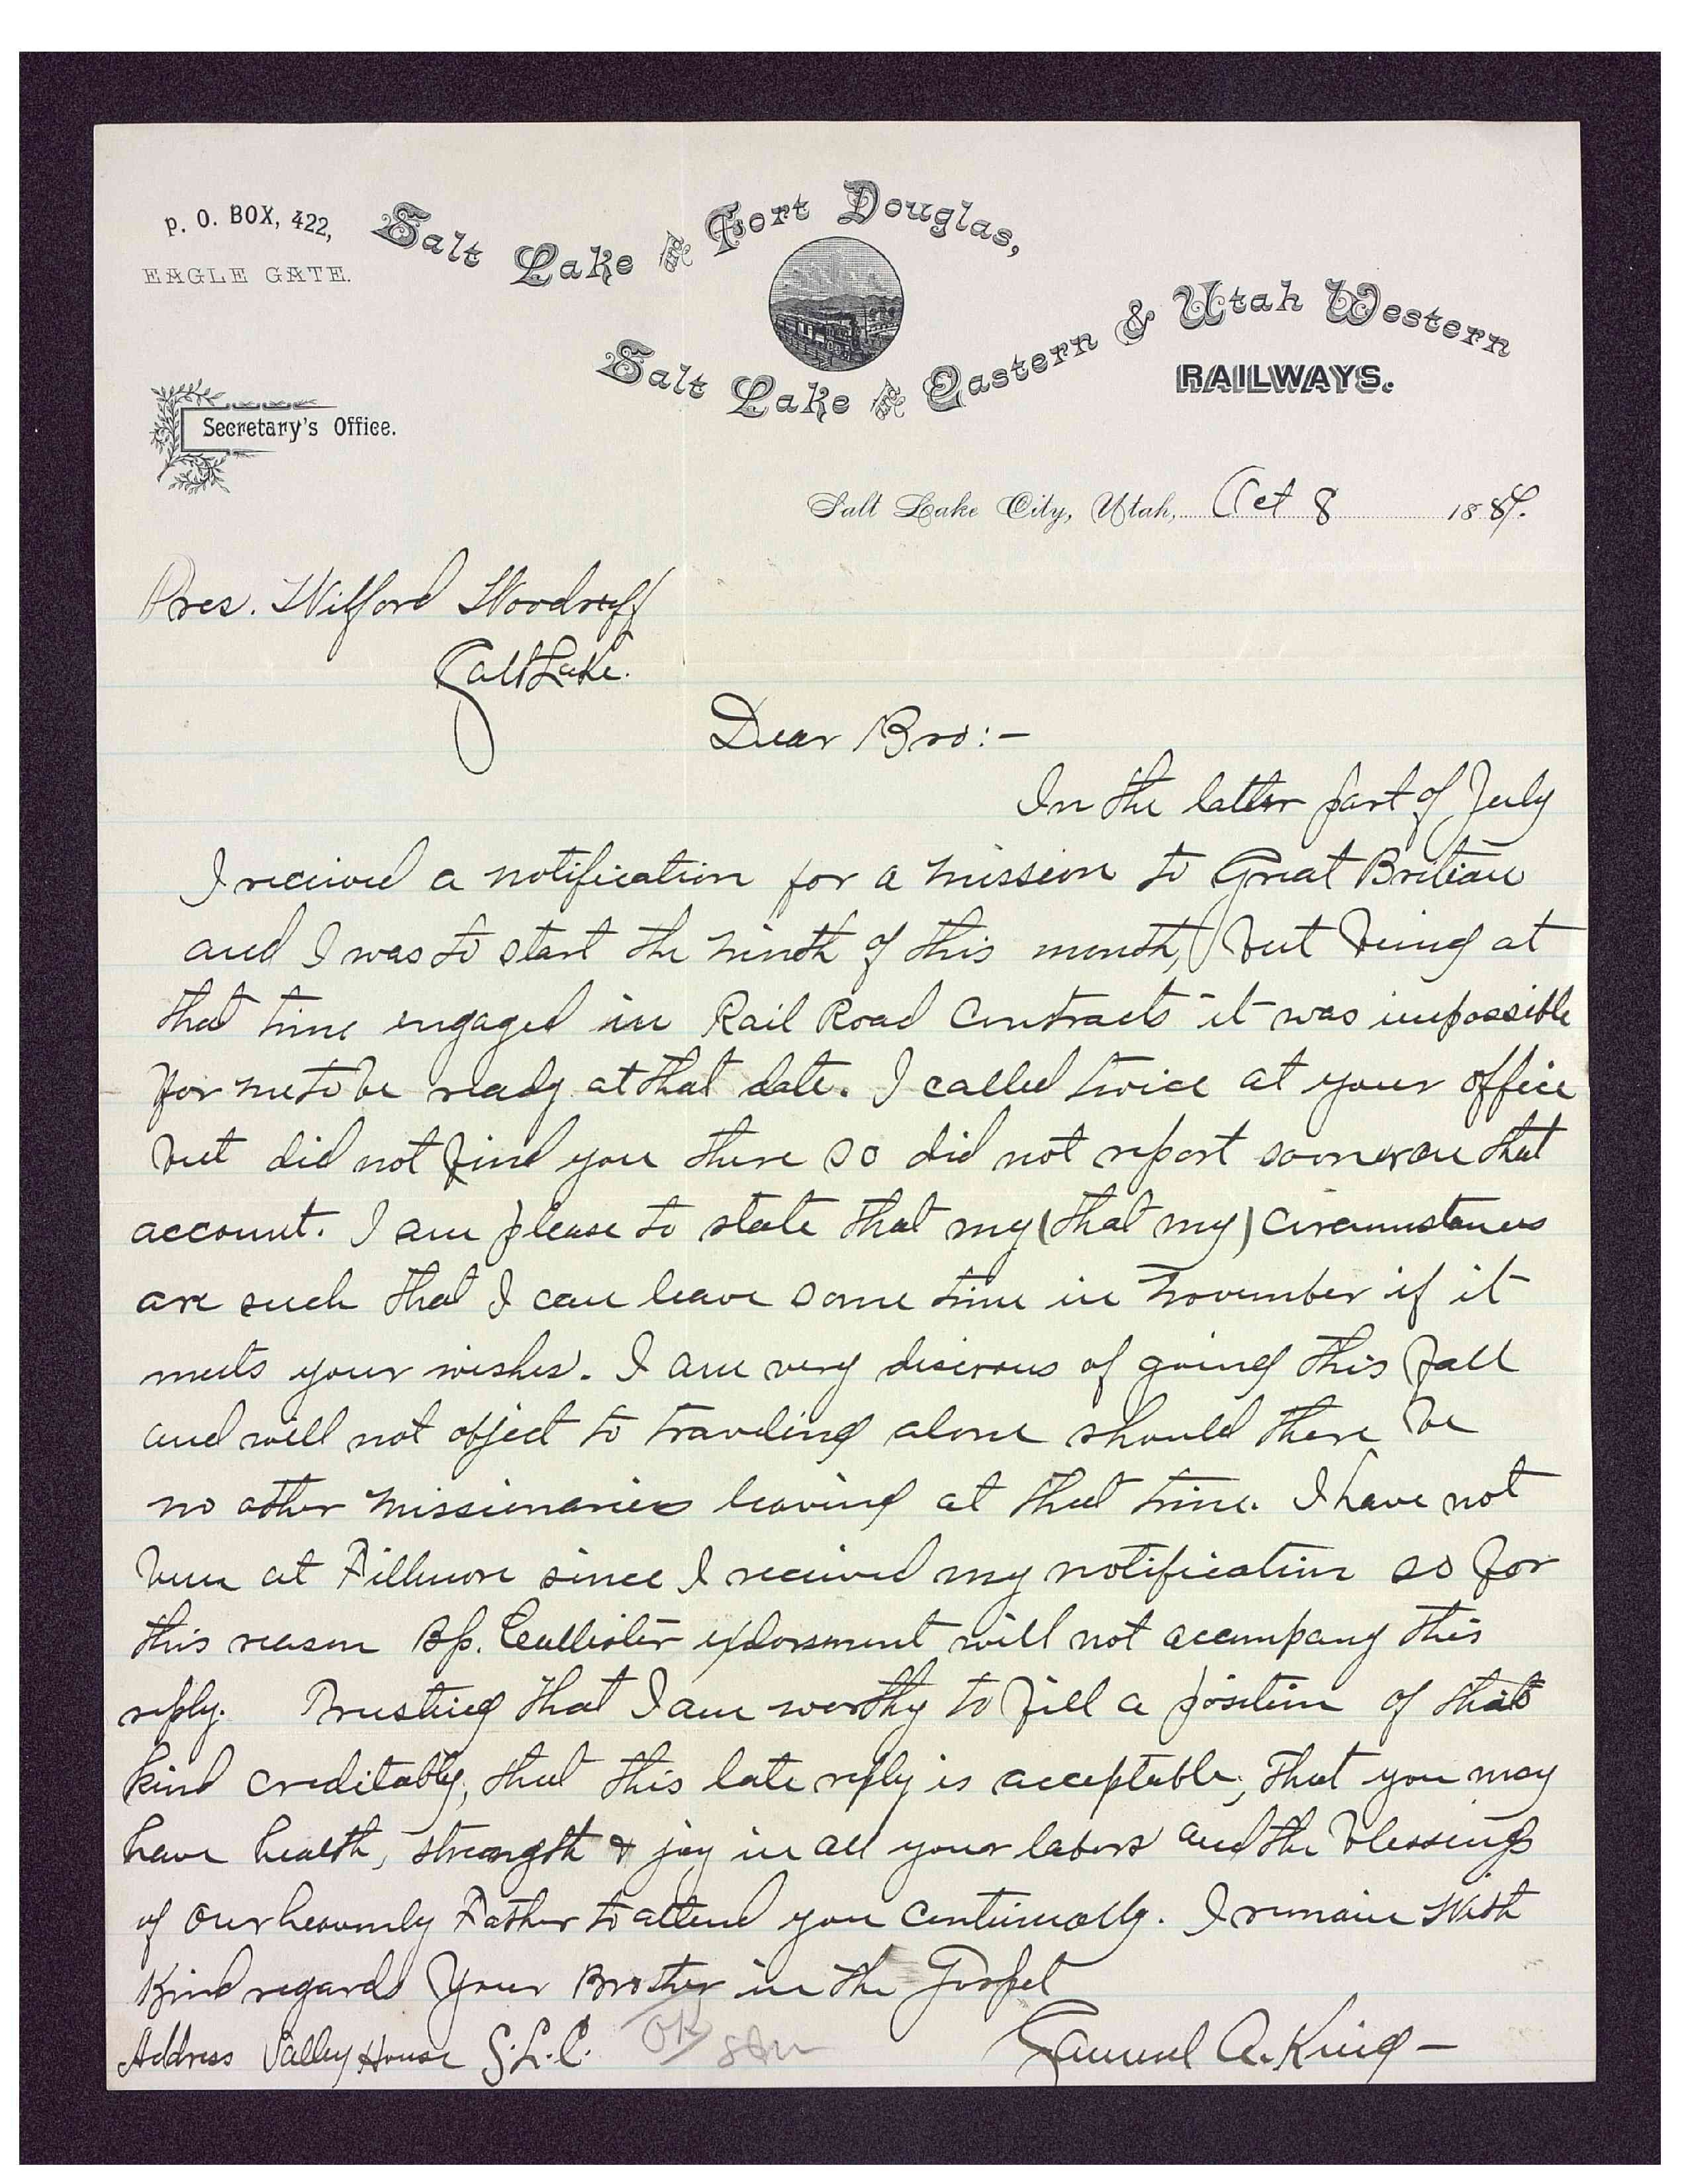 P. O. BOX, 422,
EAGLE GATE.
Salt Lake and Fort Douglas,
Salt Lake and Eastern & Utah Western
RAILWAYS.
Secretary's Office.
Salt Lake City, Utah, Oct 8 1889.
Pres. Wilford Woodruff
Salt Lake.
Dear Bro:-
In the latter part of July
I recieved a notification for a mission to Great Britian
and I was to start the ninth of this month, but being at
that time engaged in Rail Road Contracts it was impossible
for me to be ready at that date. I called twice at your office
but did not find you there so did not report sooner on that
account. I am please to state that my (that my) circumstances
are such that I can leave some time in November if it
meets your wishes. I am very discrous of going this fall
and will not object to traveling alone should there be
no other missionaries leaving at that time. I have not
been at Fillmore since I received my notification so for
this reason Bp. Callister endorsment will not accompany this
reply. Trusting that I am worthy to fill a position of this
kind creditably, that this late reply is acceptable, that you may
have health, strength & joy in all your labors and the blessings
of our heavenly Father to attend you continually. I remain with
Kind regards Your Brother in the Gospel
Samuel A. King-
Address Valley House S.L.C.
OK